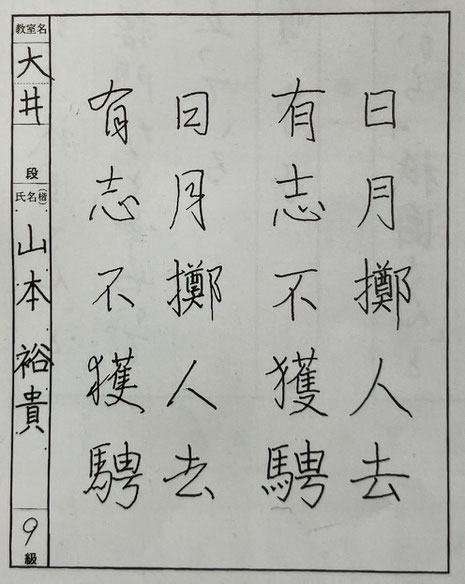 日月擲人去
有志不獲騁
日月擲人去
有志不獲騁
教室名
大井
段
氏名(楷)
山本裕貴
9級